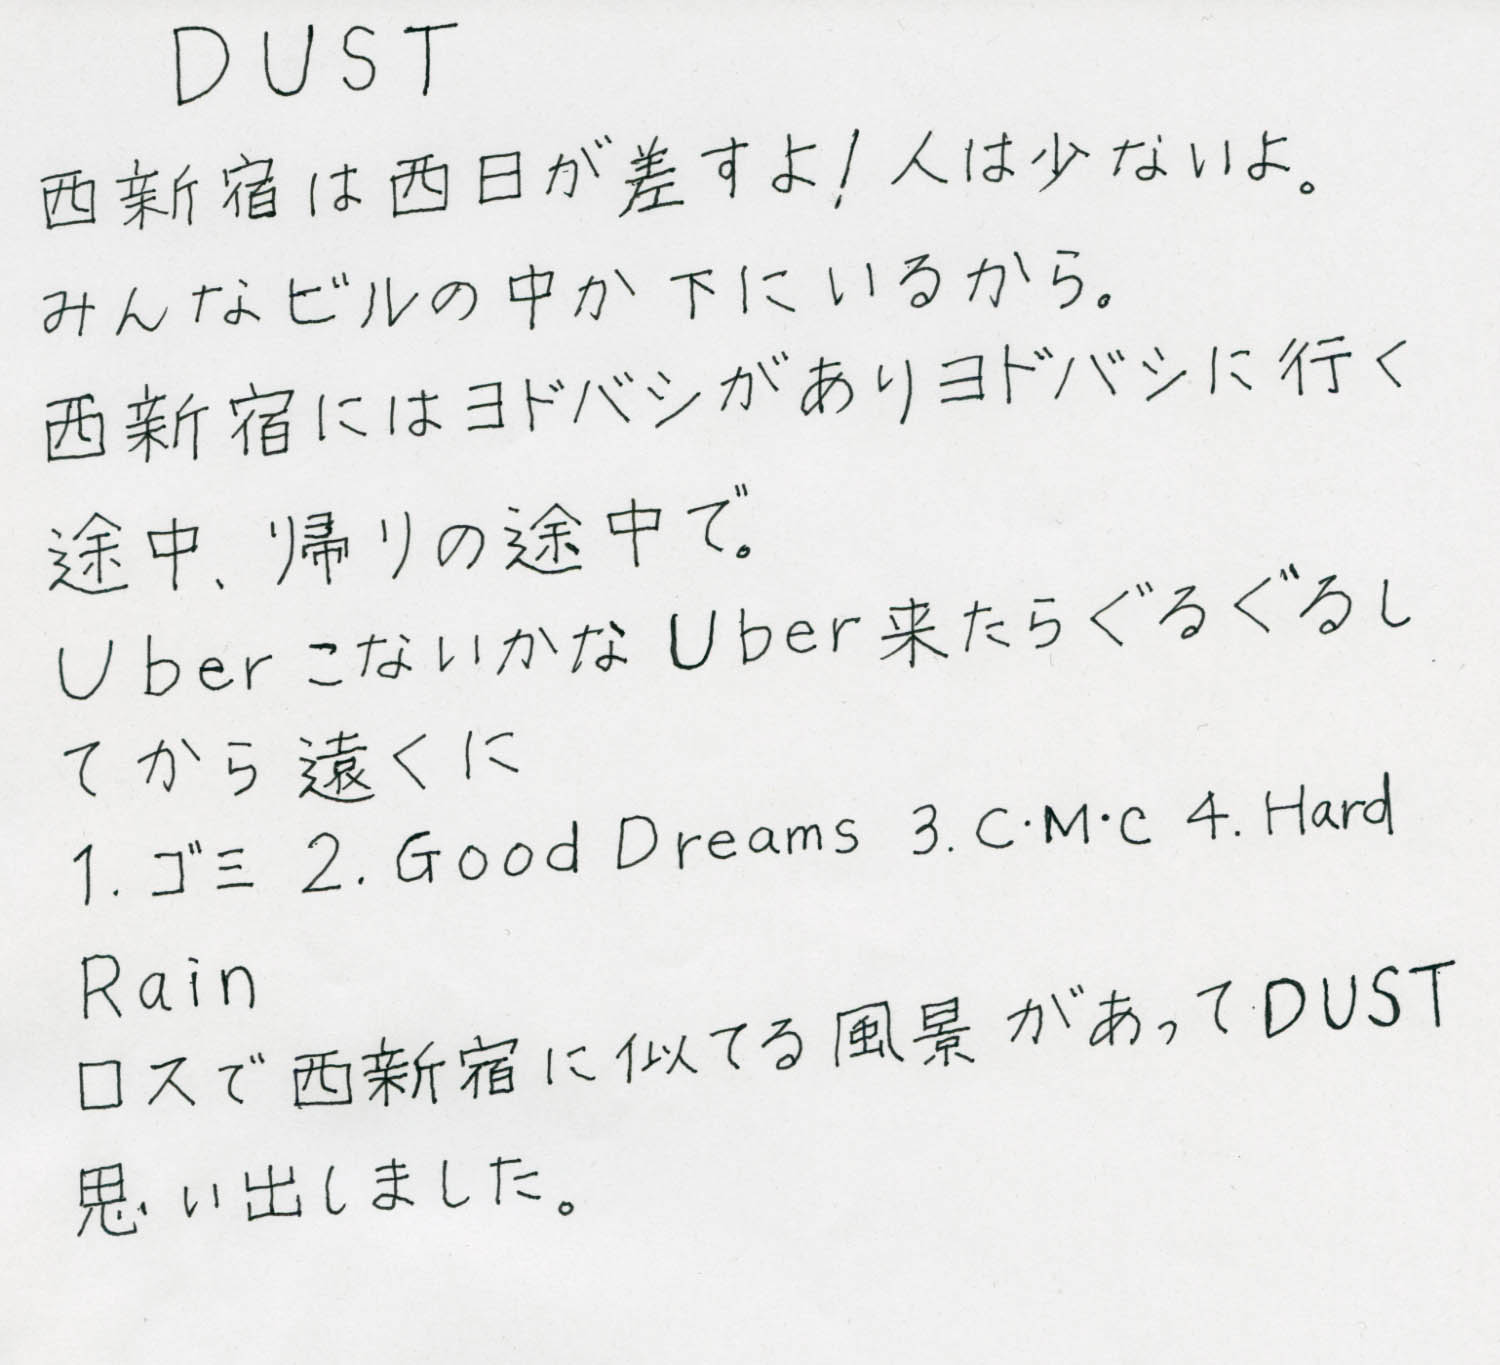 DUST
西新宿は西日が差すよ!人は少ないよ。
みんなビルの中か下にいるから。
西新宿にはヨドバシがありヨドバシに行く
途中、帰りの途中で。
Uberこないかな Uber来たらぐるぐるし
てから遠くに
1.ゴミ 2.Good Dreams 3.C・M・C 4.Hard
Rain
ロスで西新宿に似てる風景があってDUST
思い出しました。